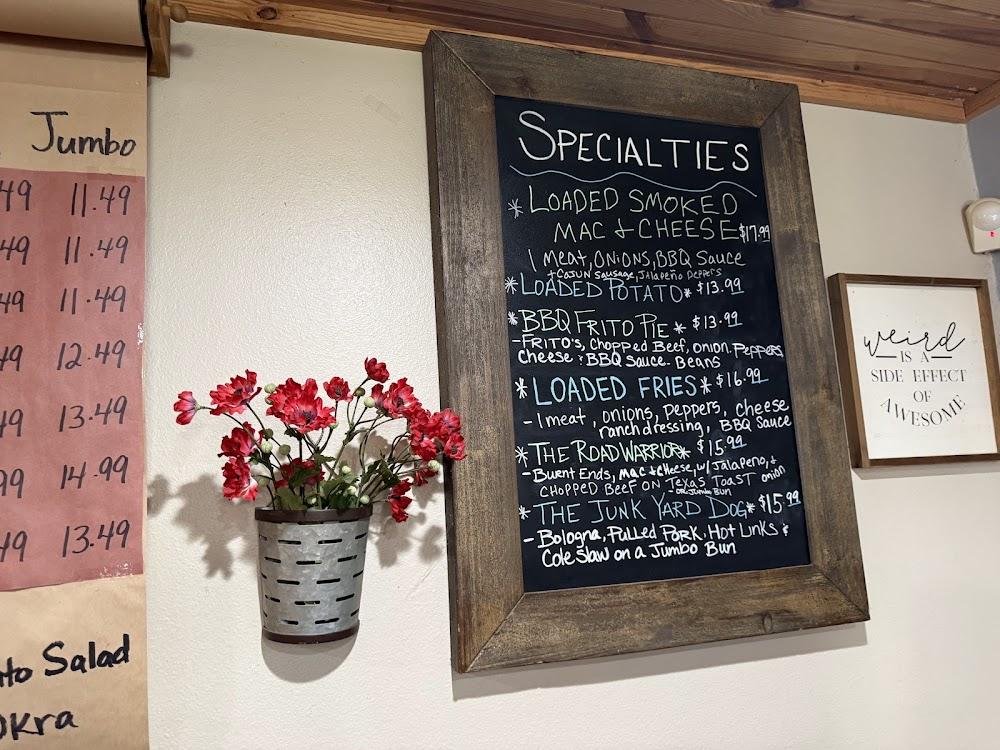 Jumbo
49 11.49
49 11.49
49 11.49
49 12.49
49 13.49
99 14.99
49 13.49
Salad
Okra
SPECIALTIES
* LOADED SMOKED
MAC & CHEESE $17.99
1 Meat, ONiONS, BBQ Sauce
+ CAJUN Sausage, JAlapeño Peppers
* LOADED POTATO * $13.99
* BBQ FRITO PIE * $13.99
- FRITO'S, Chopped Beef, onion. Peppers,
Cheese & BBQ Sauce. Beans
* LOADED FRIES * $16.99
- 1 meat, onions, Peppers, cheese
ranch dressing, BBQ Sauce
* THE ROAD WARRIOR * $15.99
- Burnt Ends, MAC & cHeese, w/ Jalapeño, &
CHOPPED BEEF ON TEXAS TOAST onion
- or Jumbo Bun
* THE JUNK YARD DOG * $15.99
- Bologna, Pulled Pork, Hot Links &
Cole Slaw on a Jumbo Bun
weird
IS A
SIDE EFFECT
OF
AWESOME